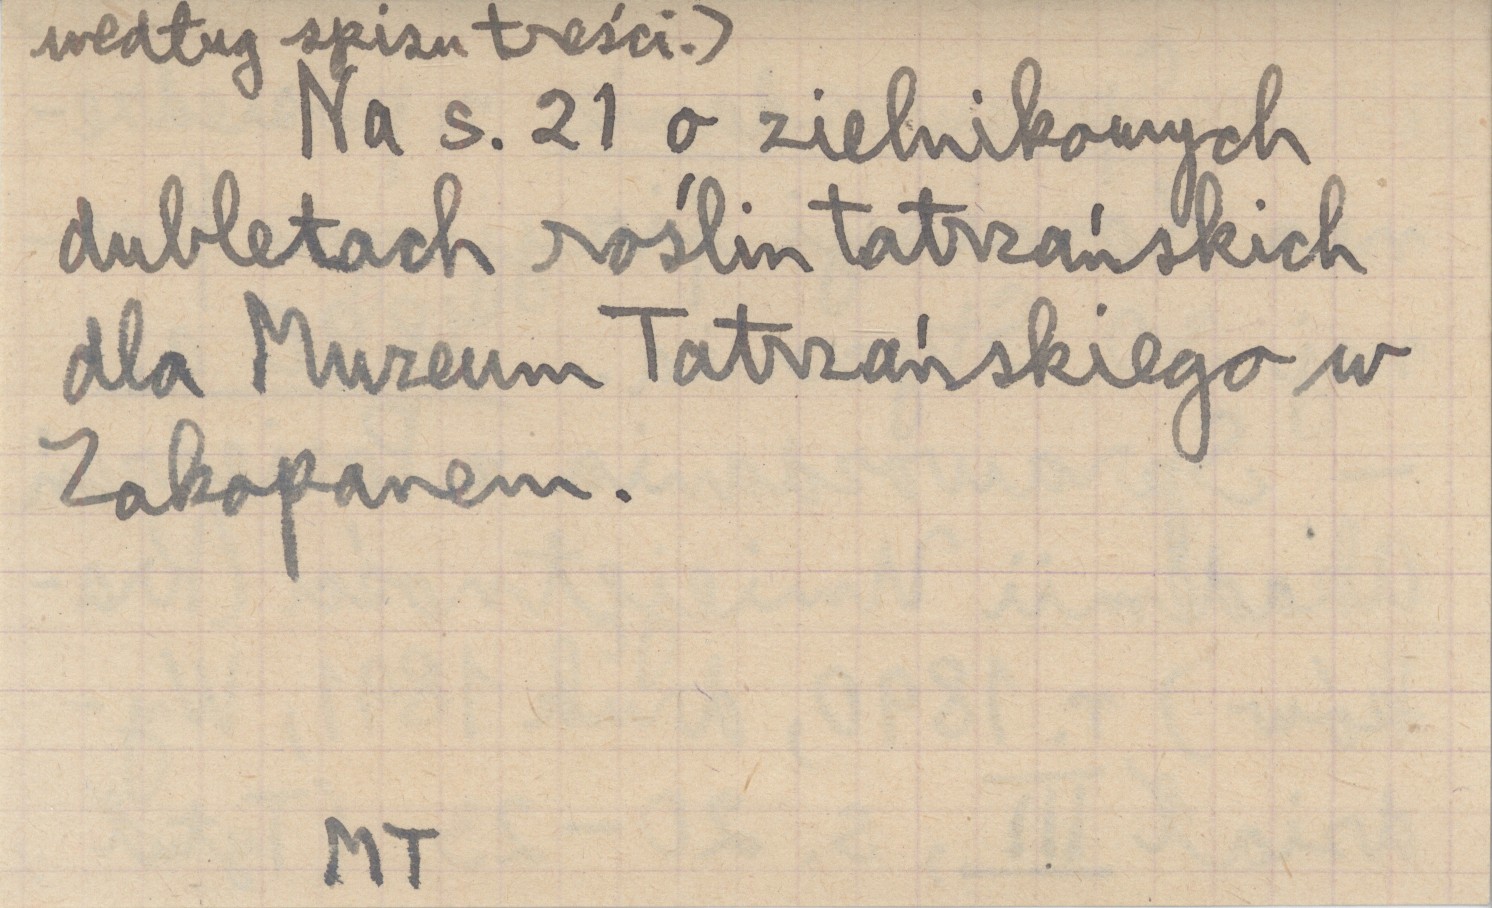 według spisu treści.)
Na s. 21 o zielnikowych
dubletach roślin tatrzańskich
dla Muzeum Tatrzańskiego w
Zakopanem.
MT